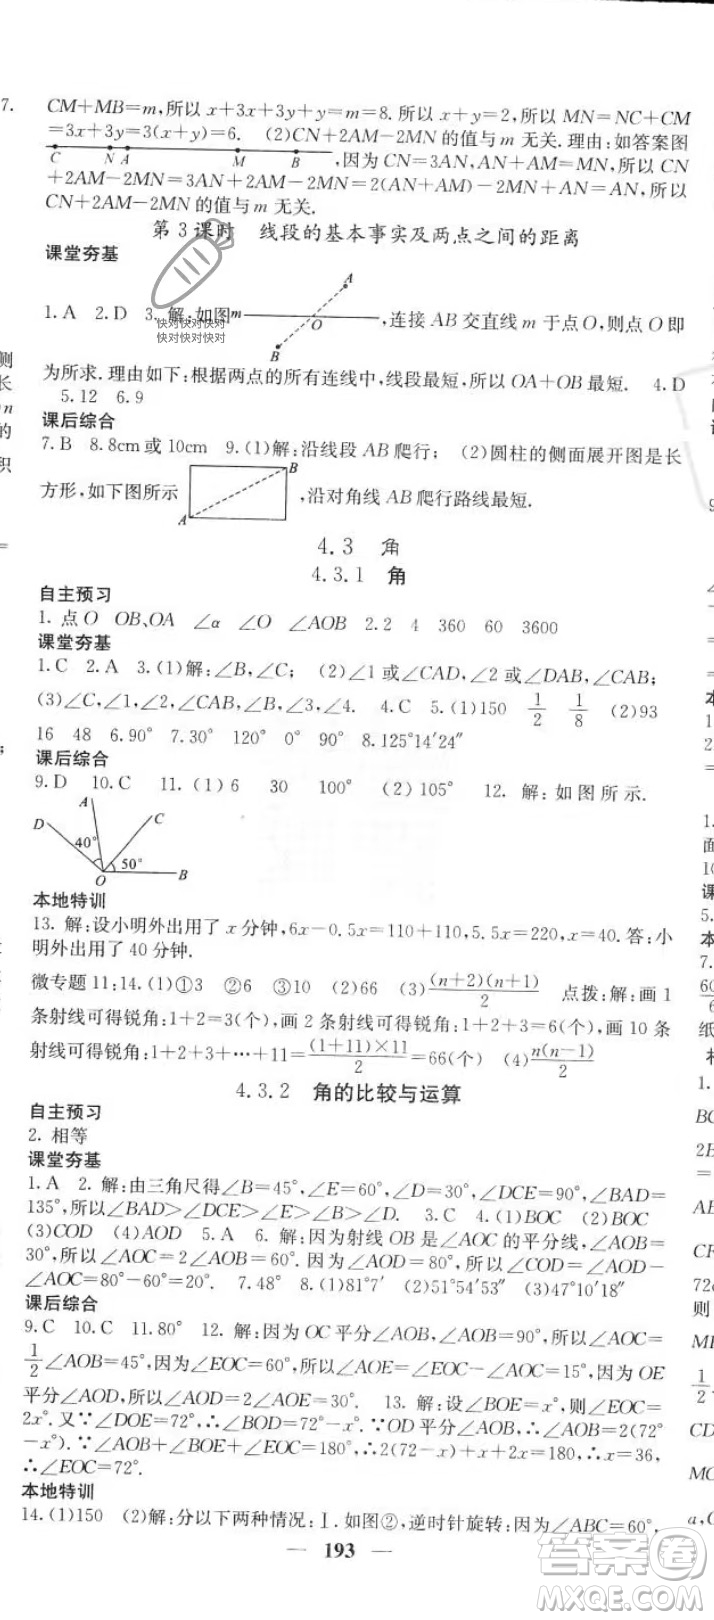 7. CM+MB=m,所以 x+3x+3y+y=m=8.所以 x+y=2,所以 MN=NC+CM
=3x+3y=3(x+y)=6. (2)CN+2AM-2MN 的值与 m 无关.理由:如答案图
C N A M B ,因为 CN=3AN,AN+AM=MN,所以 CN
+2AM-2MN=3AN+2AM-2MN=2(AN+AM)-2MN=0,所以
CN+2AM-2MN 的值与 m 无关.
第 3 课时 线段的基本事实及两点之间的距离
课堂夯基
1.A 2.D 3.解:如图 m O A B ,连接 AB 交直线 m 于点 O,则点 O 即
快对快对快对
快对快对快对
为所求.理由如下:根据两点的所有连线中,线段最短,所以 OA+OB 最短. 4.D
5.12 6.9
课后综合
7.B 8.8cm 或 10cm 9.(1)解:沿线段 AB 爬行; (2)圆柱的侧面展开图是长
方形,如下图所示 A B ,沿对角线 AB 爬行路线最短.
4.3 角
4.3.1 角
自主预习
1.点 O OB、OA ∠α ∠O ∠AOB 2.2 4 360 60 3600
课堂夯基
1.C 2.A 3.(1)解:∠B,∠C; (2)∠1 或∠CAD,∠2 或∠DAB,∠CAB;
(3)∠C,∠1,∠2,∠CAB,∠B,∠3,∠4. 4.C 5.(1)150 1/2 1/8 (2)93
16 48 6.90° 7.30° 120° 0° 90° 8.125°14′24″
课后综合
9.D 10.C 11.(1)6 30 100° (2)105° 12. 解:如图所示.
D A C 40° 50° O B
本地特训
13.解:设小明外出用了 x 分钟,6x-0.5x=110+110,5.5x=220,x=40.答:小
明外出用了 40 分钟.
微专题 11:14.(1)①3 ②6 ③10 (2)66 (3)(n+2)(n+1)/2 点拨:解:画 1
条射线可得锐角:1+2=3(个),画 2 条射线可得锐角:1+2+3=6(个),画 10 条
射线可得锐角:1+2+3+…+11=(1+11)×11/2=66(个) (4)n(n-1)/2
4.3.2 角的比较与运算
自主预习
2.相等
课堂夯基
1.A 2.解:由三角尺得∠B=45°,∠E=60°,∠D=30°,∠DCE=90°,∠BAD=
135°,所以∠BAD>∠DCE>∠E>∠B>∠D. 3.C 4.(1)BOC (2)BOC
(3)COD (4)AOD 5.A 6.解:因为射线 OB 是∠AOC 的平分线,∠AOB=
30°,所以∠AOC=60°.因为∠AOD=80°,所以∠COD=∠AOD-
∠AOC=80°-60°=20°. 7.48° 8.(1)81°7′ (2)51°54′53″ (3)47°10′18″
课后综合
9.C 10.C 11.80° 12.解:因为 OC 平分∠AOB,∠AOB=90°,所以∠AOC=
1/2∠AOB=45°,因为∠EOC=60°,所以∠AOE=∠EOC-∠AOC=15°,因为 OE
平分∠AOD,所以∠AOD=2∠AOE=30°. 13.解:设∠BOE=x°,则∠EOC=
2x°.又∵∠DOE=72°,∴∠BOD=72°-x°.∵OD 平分∠AOB,∴∠AOB=2(72°
-x°).∵∠AOB+∠BOE+∠EOC=180°,∴2(72-x)+x+2x=180,∴x=36,
∴∠EOC=72°.
本地特训
14.(1)150 (2)解:分以下两种情况:Ⅰ.如图②,逆时针旋转:因为∠ABC=60°,
193
答案圈
MXQE.COM